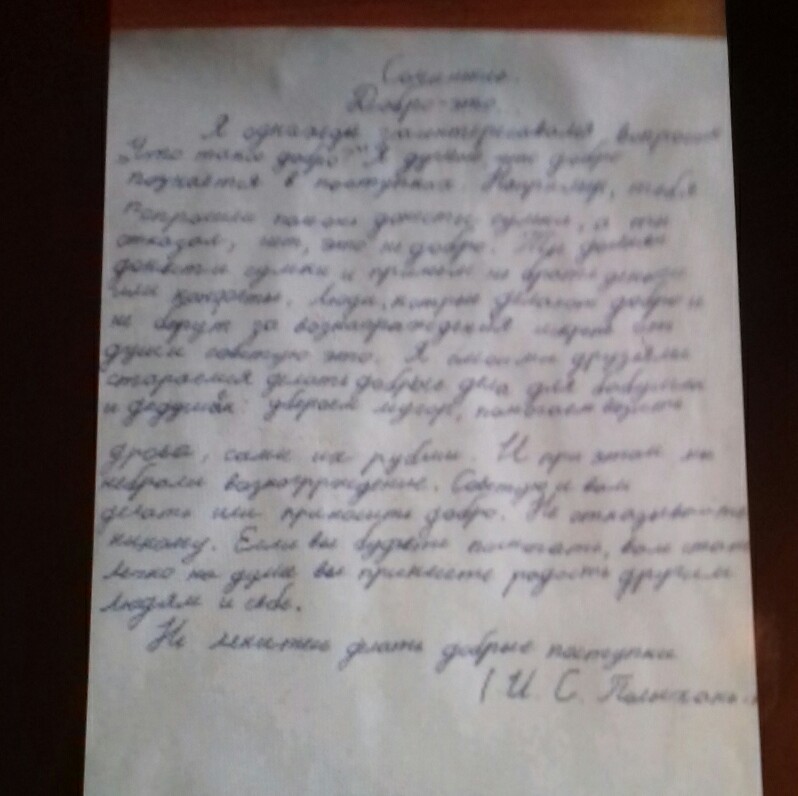 Добро-это
Я однажды заинтересовался вопросом
"Что такое добро?" Я думаю, что добро
в поступках. Например, тебя
попросили помочь донести сумки, а ты
отказал, нет, это не добро. Ты должен
донести сумки и при не брать деньги
или конфеты. Люди, которые делают добро и
не берут за вознаграждения от
души советую это. Я друзьями
стараемся делать добрые дела для бабушки
и дедушки: мусор, помогаем
дрова, сами их рубим. И при этом мы
Советую и вам
делать или приносить добро. Не отказывайте
никому. Если вы будете помогать, вам
легко на душе вы принесете радость другим
людям и себе.
Не делать добрые поступки
И. С.